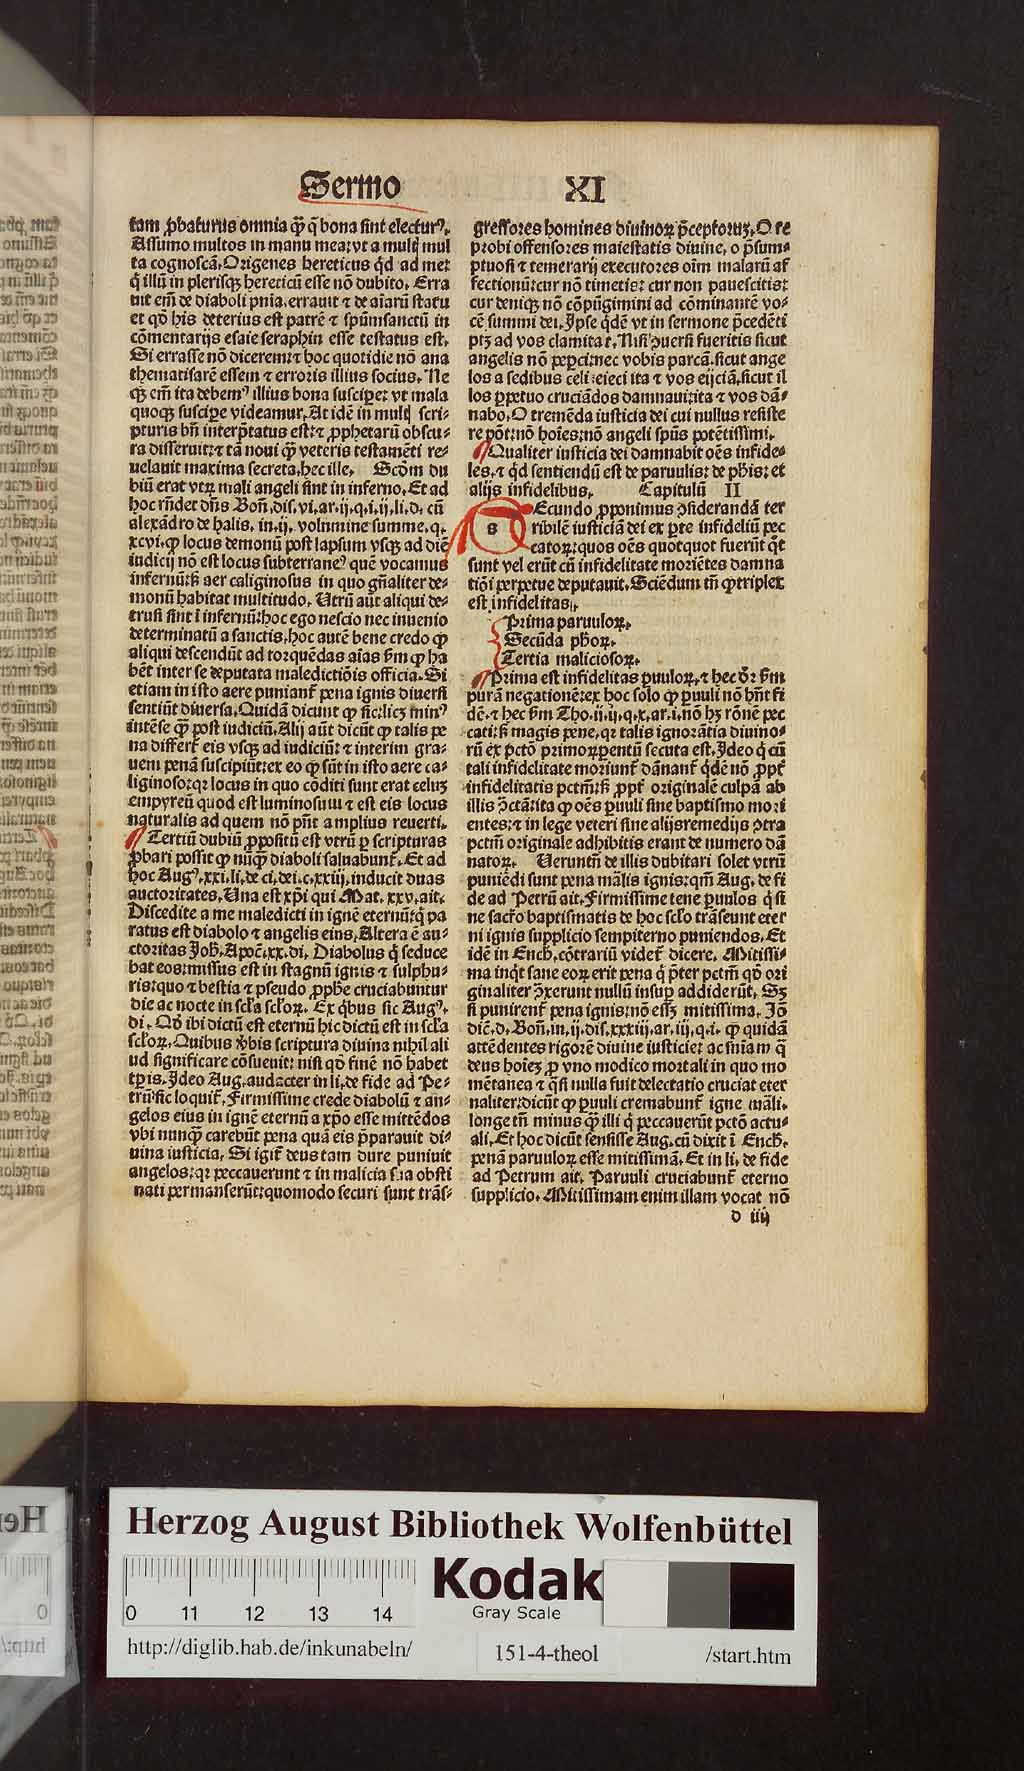 Sermo XI
tam ꝓbaturus omnia qͣꝫ q̃ bona sint electurꝰ.
Assumo multos in manu mea: vt a mult̃ mul
ta cognoscã. Origenes hereticus qͥd ad me:
q̇ illũ in plerisqꝫ hereticũ esse nõ dubito. Erra
uit em̃ de diaboli pnĩa. errauit ⁊ de aĩarũ statu
et qđ his deterius est patrẽ ⁊ spũmsanctũ in
cõmentarijs esaie seraphin esse testatus est.
Si errasse nõ dicerem: ⁊ hoc quotidie nõ ana
thematisarẽ essem ⁊ erroris illius socius. Ne
qꝫ em̃ ita debemꝰ illius bona suscipe: vt mala
quoqꝫ suscipe videamur. At idẽ in mult̃ scri-
pturis bñ interp̃tatus est: ⁊ ꝓphetarũ obscu-
ra disseruit: ⁊ tã noui qͣꝫ veteris testamẽti re-
uelauit maxima secreta. hec ille. Scđm du
biũ erat vtꝝ mali angeli sint in inferno. Et ad
hoc rñdet dñs Boñ. dis. vi. ar. ij. q. i. ij. li. d. cũ
alexãdro de halis. in. ij. volumine summe. q.
xcvi. ꝙ locus demonũ post lapsum vsqꝫ ad diẽ
iudicij nõ est locus subterraneꝰ quẽ vocamus
infernũ: sꝫ aer caliginosus in quo gñaliter de-
monũ habitat multitudo. Vtrũ aũt aliqui de-
trusi sint ĩ infernũ: hoc ego nescio nec inuenio
determinatũ a sanctis. hoc autẽ bene credo ꝙ
aliqui descendũt ad torquẽdas aĩas ẜm ꝙ ha
bẽt inter se deputata maledictiõis officia. Si
etiam in isto aere puniant᷑ pena ignis diuersi
sentiũt diuersa. Quidã dicunt ꝙ sic: licꝫ minꝰ
intẽse qͣꝫ post iudiciũ. Alij aũt dicũt ꝙ talis pe
na differt᷑ eis vsqꝫ ad iudiciũ: ⁊ interim gra-
uem penã suscipiũt: ex eo ꝙ sũt in isto aere ca-
liginoso: qꝛ locus in quo cõditi sunt erat celuꝫ
empyreũ quod est luminosum ⁊ est eis locus
naturalis ad quem nõ pñt amplius reuerti.
Tertiũ dubiũ ꝓpositũ est vtrũ ꝑ scripturas
ꝓbari possit ꝙ nũqͣꝫ diaboli saluabunt᷑. Et ad
hoc Augꝰ. xxi. li. de ci. dei. c. xxiij. inducit duas
auctoritates. Una est xp̃i qui Mat. xxv. ait.
Discedite a me maledicti in ignẽ eternũ: q̇ pa
ratus est diabolo ⁊ angelis eius. Altera ẽ au-
ctoritas Joh̃. Apoc̃. xx. di. Diabolus q̇ seduce
bat eos: missus est in stagnũ ignis ⁊ sulphu-
ris: quo ⁊ bestia ⁊ pseudo ꝓphe cruciabuntur
die ac nocte in scl̃a scl̃oꝝ. Ex qͥbus sic Augꝰ.
di. Qđ ibi dictũ est eternũ hic dictũ est in scl̃a
scl̃oꝝ. Quibus v̾bis scriptura diuina nihil ali
ud significare cõsueuit: nisi qđ finẽ nõ habet
tp̃is. Ideo Aug. audacter in li. de fide ad Pe-
trũ sic loquit᷑. Firmissime crede diabolũ ⁊ an-
gelos eius in ignẽ eternũ a xp̃o esse mittẽdos
vbi nunqͣꝫ carebũt pena quã eis p̃parauit di-
uina iusticia. Si igit᷑ deus tam dure puniuit
angelos: qꝛ peccauerunt ⁊ in malicia sua obsti
nati permanserũt: quomodo securi sunt trãs-
gressores homines diuinoꝝ p̃ceptoruꝫ. O re
probi offensores maiestatis diuine, o p̃sum-
ptuosi ⁊ temerarij executores oĩm malarũ af
fectionũ: cur nõ timetis: cur non pauescitis:
cur deniqꝫ nõ cõpũgimini ad cõminantẽ vo-
cẽ summi dei. Ipse qͥdẽ vt in sermone p̃cedẽti
ptꝫ ad vos clamitat. Nisi ɔuersi fueritis sicut
angelis nõ peꝑci: nec vobis parcã. sicut ange
los a sedibus celi eieci ita ⁊ vos eijciã. sicut il
los ꝑpetuo cruciãdos damnaui: ita ⁊ vos dã-
nabo. O tremẽda iusticia dei cui nullus resiste
re põt: nõ hoĩes: nõ angeli spũs potẽtissimi.
Qualiter iusticia dei damnabit oẽs infide-
les. ⁊ qͥd sentiendũ est de paruulis: de ph̃is: et
alijs infidelibus. Capitulũ II
SEcundo ꝓponimus ɔsiderandã ter
ribilẽ iusticiã dei ex ꝑte infideliũ pec
catoꝝ: quos oẽs quotquot fuerũt qͥt
sunt vel erũt cũ infidelitate moriẽtes damna
tiõi perpetue deputauit. Sciẽdum tñ ꝙ triplex
est infidelitas.
Prima paruuloꝝ.
Secũda ph̃oꝝ.
Tertia malicioſoꝝ.
Prima est infidelitas ꝑuuloꝝ. ⁊ hec dr̃ ẜm
purã negationẽ: ex hoc solo ꝙ ꝑuuli nõ hñt fi
dẽ. ⁊ hec ẜm Tho. ij. ij. q. x. ar. i. nõ hꝫ rõnẽ pec
cati: sꝫ magis pene. qꝛ talis ignorãtia diuino-
rũ ex pctõ primoꝝ pentũ secuta est. Ideo q̇ cũ
tali infidelitate moriunt᷑ dãnant᷑ qͥdẽ nõ ꝓpt᷑
infidelitatis pctm̃: sꝫ ꝓpt᷑ originalẽ culpã ab
illis ɔctã: ita ꝙ oẽs ꝑuuli sine baptismo mori
entes: ⁊ in lege veteri sine alijs remedijs ɔtra
pctm̃ originale adhibitis erant de numero dã
natoꝝ. Veruntm̃ de illis dubitari solet vtrũ
puniẽdi sunt pena mãlis ignis: qm̃ Aug. de fi
de ad Petrũ ait. Firmissime tene ꝑuulos q̇ si
ne sacr̃o baptismatis de hoc scl̃o trãseunt eter
ni ignis supplicio sempiterno puniendos. Et
idẽ in Ench. cõtrariũ videt᷑ dicere. Mitissi-
ma inqͥt sane eoꝝ erit pena q̇ p̃ter pctm̃ qđ ori
ginaliter ɔ̃xerunt nullũ insuꝑ addiderũt. Sꝫ
si punirent᷑ pena ignis: nõ esset mitissima. Iõ
diẽ. d. Boñ. in. ij. dis. xxxiij. ar. iij. q. i. ꝙ quidã
attẽdentes rigorẽ diuine iusticie: ac sñiam q̃
deus hoieꝫ ꝓ vno modico mortali in quo mo
mẽtanea ⁊ qͣsi nulla fuit delectatio cruciat eter
naliter: dicũt ꝙ ꝑuuli cremabunt᷑ igne mãli.
longe tñ minus qͣꝫ illi q̇ peccauerũt pctõ actu-
ali. Et hoc dicũt sensisse Aug. cũ dixit ĩ Ench.
penã paruuloꝝ esse mitissimã. Et in li. de fide
ad Petrum ait. Paruuli cruciabunt᷑ eterno
supplicio. Mitissimam enim illam vocat nõ
d iiij
Herzog August Bibliothek Wolfenbüttel
Kodak
Gray Scale
0 11 12 13 14
http://diglib.hab.de/inkunabeln/ 151-4-theol /start.htm